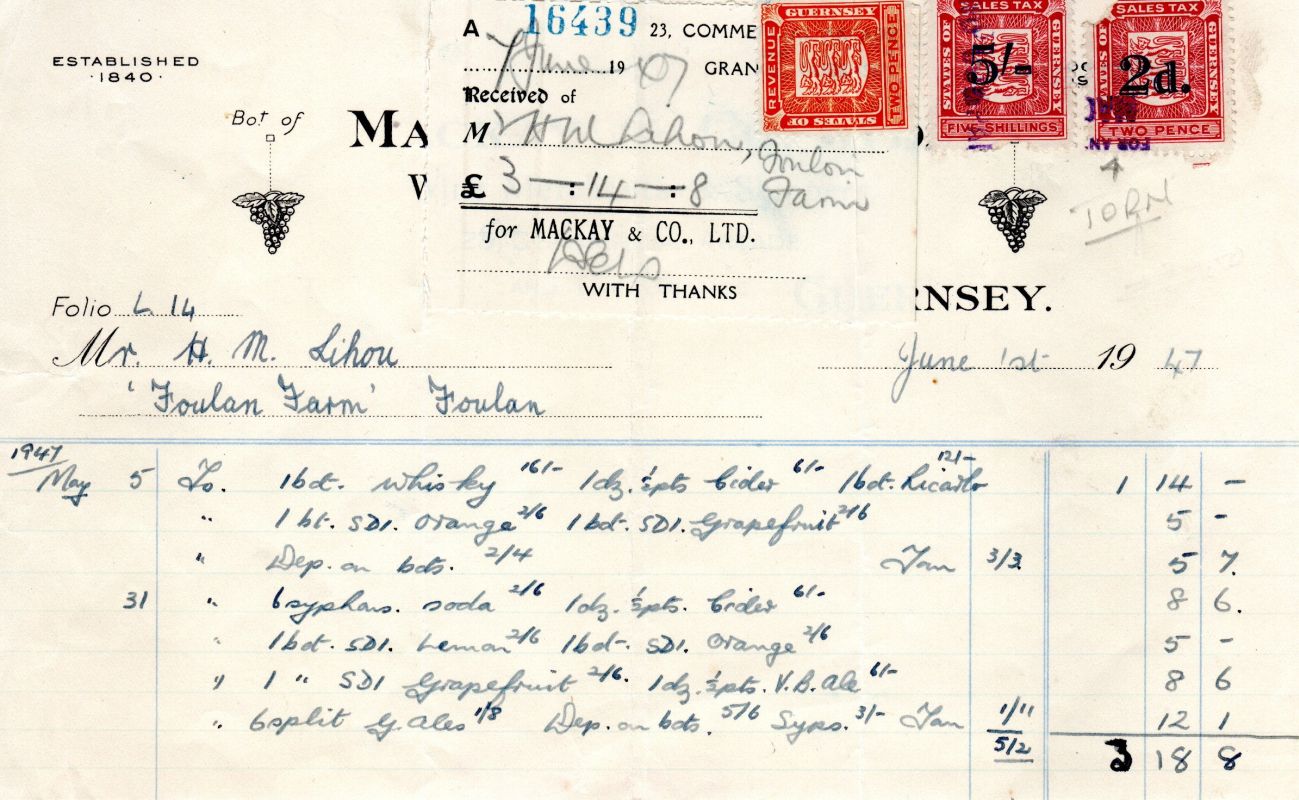 ESTABLISHED
·1840·
Bot of
MA
W
RNSEY.
A 16439 23, COMME
7 June 19 47 GRAN
Received of
M r H M Lihou, Foulon
Farm
£ 3 — : 14 — : 8
for MACKAY & CO., LTD.
WITH THANKS
REVENUE GUERNSEY TWO PENCE STATES OF
SALES TAX STATES OF GUERNSEY 5/- FIVE SHILLINGS
SALES TAX STATES OF GUERNSEY 2d. TWO PENCE
FOR AN
TORN
Folio L 14
Mr. H. M. Lihou
June 1st 19 47
'Foulan Farm' Foulan
1947
May 5 To. 1 bot. Whisky 16/- 1 dz. ½pts Cider 6/- 1 bot. 12/- 1 14 -
" 1 bt. SD1. Orange 2/6 1 bot. SD1. Grapefruit 2/6 5 -
" Dep. on bots. 2/4 Tax 3/3. 5 7.
31 " 6 syphons. soda 2/6 1 dz. ½pts. Cider 6/- 8 6.
" 1 bot. SD1. Lemon 2/6 1 bot. SD1. Orange 2/6 5 -
" 1 " SD1 Grapefruit 2/6. 1 dz. ½pts. V.B. Ale 6/- 8 6
" 6 split G. Ales 1/8 Dep. on bots. 5/6 Syps. 3/- Tax 1/11 12 1
5/2 3 18 8